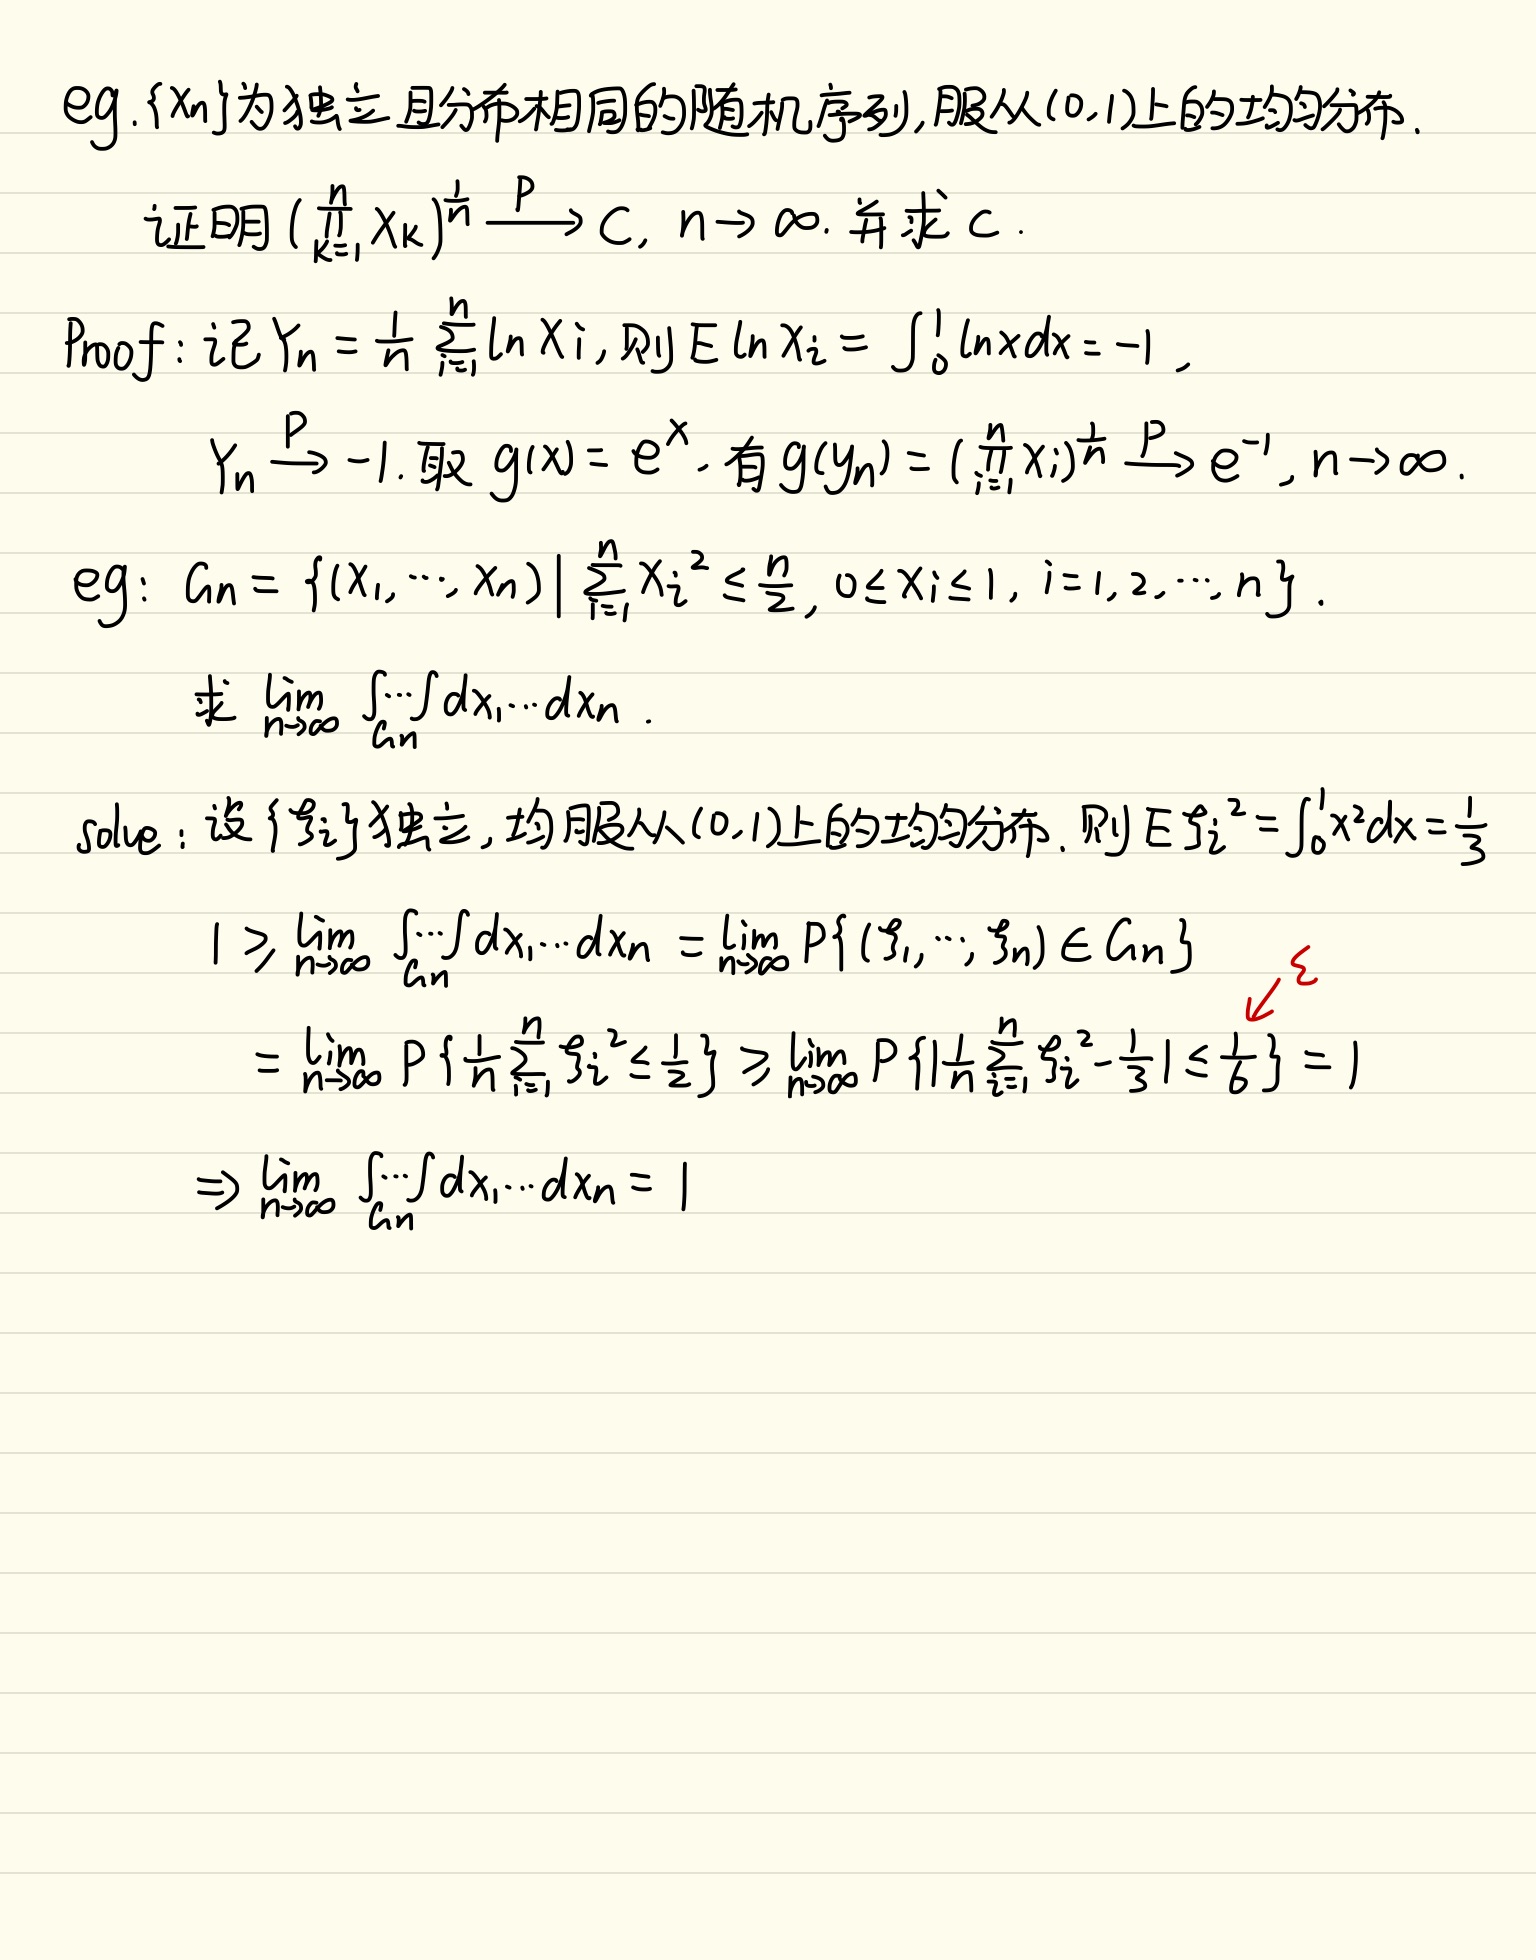 eg. {Xn}为独立且分布相同的随机序列,服从(0,1)上的均匀分布.
证明 (∏_{k=1}^{n} X_k)^{1/n} —P→ C, n→∞. 并求 C.
Proof: 记 Yn = 1/n ∑_{i=1}^{n} ln Xi, 则 E ln Xi = ∫_0^1 lnxdx = -1,
Yn —P→ -1. 取 g(x) = e^x. 有 g(yn) = (∏_{i=1}^{n} Xi)^{1/n} —P→ e^{-1}, n→∞.
eg: Gn = {(x1, ⋯, xn) | ∑_{i=1}^{n} xi² ≤ n/2, 0 ≤ xi ≤ 1, i = 1, 2, ⋯, n}.
求 lim_{n→∞} ∫⋯∫_{Gn} dx1⋯dxn.
solve: 设 {ξi}独立, 均服从(0,1)上的均匀分布. 则 Eξi² = ∫_0^1 x²dx = 1/3
1 ≥ lim_{n→∞} ∫⋯∫_{Gn} dx1⋯dxn = lim_{n→∞} P{(ξ1, ⋯, ξn) ∈ Gn}
ε
= lim_{n→∞} P{1/n ∑_{i=1}^{n} ξi² ≤ 1/2} ≥ lim_{n→∞} P{|1/n ∑_{i=1}^{n} ξi² - 1/3| ≤ 1/6} = 1
⇒ lim_{n→∞} ∫⋯∫_{Gn} dx1⋯dxn = 1